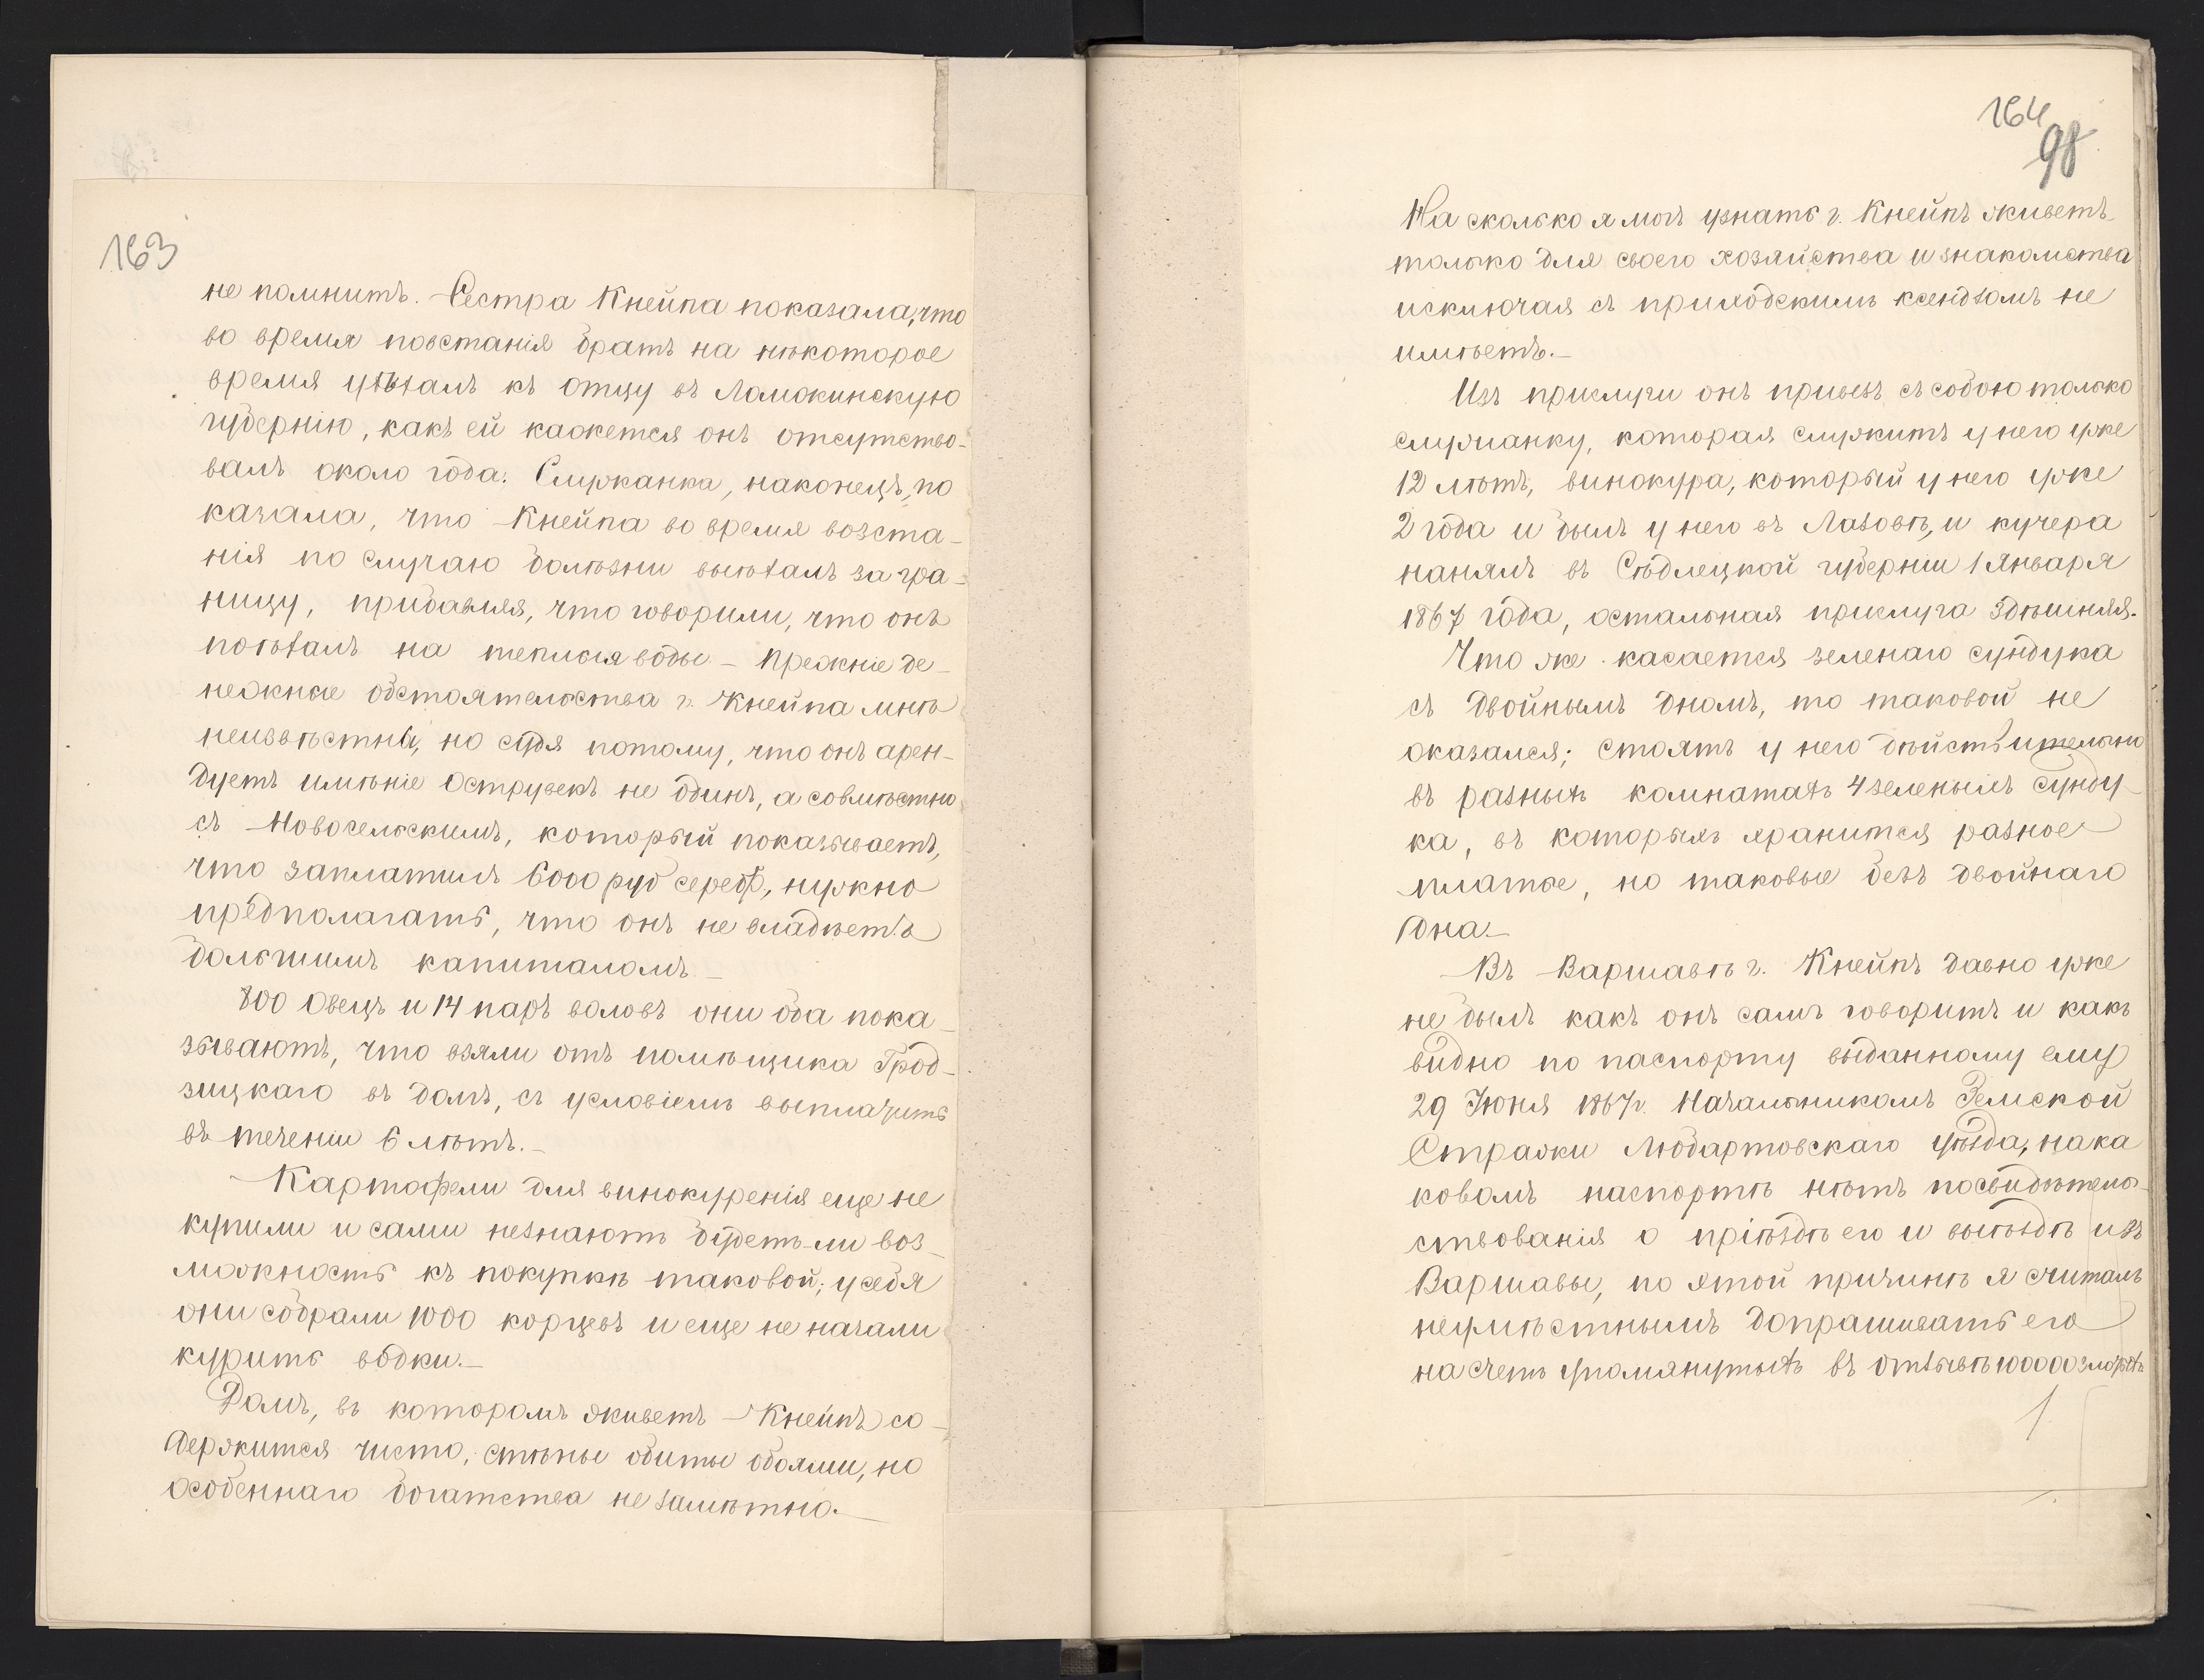 163
не помнитъ. Сестра Кнейпа показала, что
во время повстанія братъ на нѣкоторое
время уѣзжалъ къ отцу въ Ломжинскую
губернію, какъ ей кажется онъ отсутство-
валъ около года. Служанка, наконецъ, по
казала, что Кнейпа во время возста-
нія по случаю болѣзни выѣхалъ за гра-
ницу, прибавляя, что говорили, что онъ
поѣхалъ на теплыя воды – Прежніе де-
нежные обстоятельства г. Кнейпа мнѣ
неизвѣстны, но судя потому, что онъ арен-
дуетъ имѣніе Острувекъ не одинъ, а совмѣстно
съ Новосельскимъ, который показываетъ,
что заплатилъ 6000 руб сереб, нужно
предполагать, что онъ не владѣетъ
большимъ капиталомъ –
800 овецъ и 14 паръ воловъ они оба пока-
зываютъ, что взяли отъ помѣщика Грод-
зицкаго въ долгъ, съ условіемъ выплачить
въ теченіи 6 лѣтъ. –
Картофели для винокуренія еще не
купили и сами незнаютъ будетъ-ли воз-
можность къ покупкѣ таковой; у себя
они собрали 1000 корцевъ и еще не начали
курить водки. –
Домъ, въ которомъ живетъ Кнейпъ со-
держится чисто, стѣны обиты обоями, но
особеннаго богатства не замѣтно. –
164
98
На сколько я могъ узнать г. Кнейпъ живетъ
только для своего хозяйства и знакомства
исключая съ приходскимъ ксендзомъ не
имѣетъ. –
Изъ прислуги онъ привезъ съ собою только
служанку, которая служитъ у него уже
12 лѣтъ, винокура, который у него уже
2 года и былъ у него въ Лазовѣ, и кучера
нанялъ въ Сѣдлецкой губерніи 1 Января
1867 года, остальная прислуга здѣшняя.
Что же касается зеленаго сундука
съ двойнымъ дномъ, то таковой не
оказался; стоятъ у него дѣйствительно
въ разныхъ комнатахъ 4 зеленыхъ сунду-
ка, въ которыхъ хранится разное
платье, но таковые безъ двойнаго
дна. –
Въ Варшавѣ г. Кнейпъ давно уже
не былъ какъ онъ самъ говоритъ и какъ
видно по паспорту выданному ему
29 Июня 1867 г. Начальникомъ Земской
Стражи Любартовскаго уѣзда, нака
ковомъ паспортѣ нѣтъ посвидѣтель-
ствованія о пріѣздѣ его и выѣздѣ изъ
Варшавы, по этой причинѣ я считалъ
неумѣстнымъ допрашивать его
на счетъ упомянутыхъ въ отзывѣ 100000 злотыхъ
1